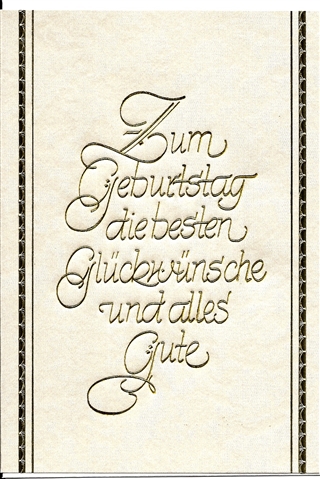 Zum
Geburtstag
die besten
Glückwünsche
und alles
Gute